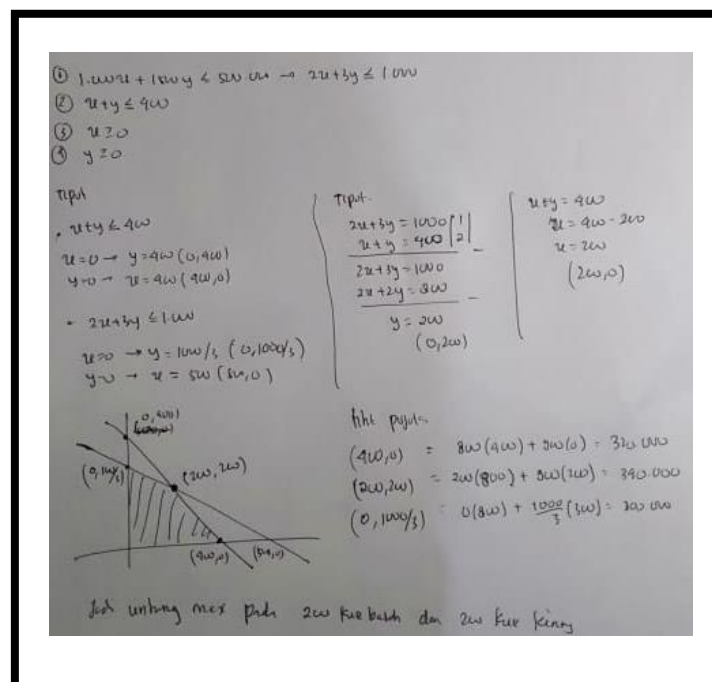 ① 1.000x + 1500y ≤ 500.000 → 2x+3y ≤ 1.000
② x+y ≤ 400
③ x ≥ 0
④ y ≥ 0
• x+y ≤ 400
x=0 → y=400 (0,400)
y=0 → x=400 (400,0)
• 2x+3y ≤ 1.000
x=0 → y = 1000/3 (0,1000/3)
y=0 → x = 500 (500,0)
2x+3y = 1000 | 1 |
x+y = 400 | 2 | -
2x+3y = 1000
2x+2y = 800 -
y = 200
(0,200)
x+y = 400
x = 400 - 200
x = 200
(200,0)
(0,400)
(0,1000/3)
(200, 200)
(400,0)
(500,0)
(400,0) = 800(400) + 900(0) = 320.000
(200,200) = 200(800) + 900(200) = 340.000
(0,1000/3) = 0(800) + 1000/3 (900) = 300.000
Jadi untung max pada 200 kue basah dan 200 kue kering